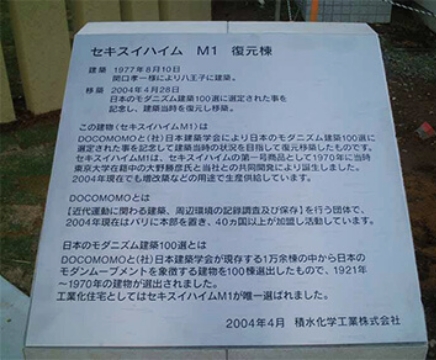 セキスイハイム M1 復元棟
建築 1977年8月10日
関口孝一様により八王子に建築。
移築 2004年4月28日
日本のモダニズム建築100選に選定された事を
記念し、建築当時を復元し移築。
この建物(セキスイハイムM1)は
DOCOMOMOと(社)日本建築学会により日本のモダニズム建築100選に
選定された事を記念して建築当時の状況を目指して復元移築したものです。
セキスイハイムM1は、セキスイハイムの第一号商品として1970年に当時
東京大学在籍中の大野勝彦氏と当社との共同開発により誕生しました。
2004年現在でも増改築などの用途で生産供給しています。
DOCOMOMOとは
【近代運動に関わる建築、周辺環境の記録調査及び保存】を行う団体で、
2004年現在はパリに本部を置き、40ヵ国以上が加盟し活動しています。
日本のモダニズム建築100選とは
DOCOMOMOと(社)日本建築学会が現存する1万余棟の中から日本の
モダンムーブメントを象徴する建物を100棟選出したもので、1921年
〜1970年の建物が選出されました。
工業化住宅としてはセキスイハイムM1が唯一選ばれました。
2004年4月 積水化学工業株式会社